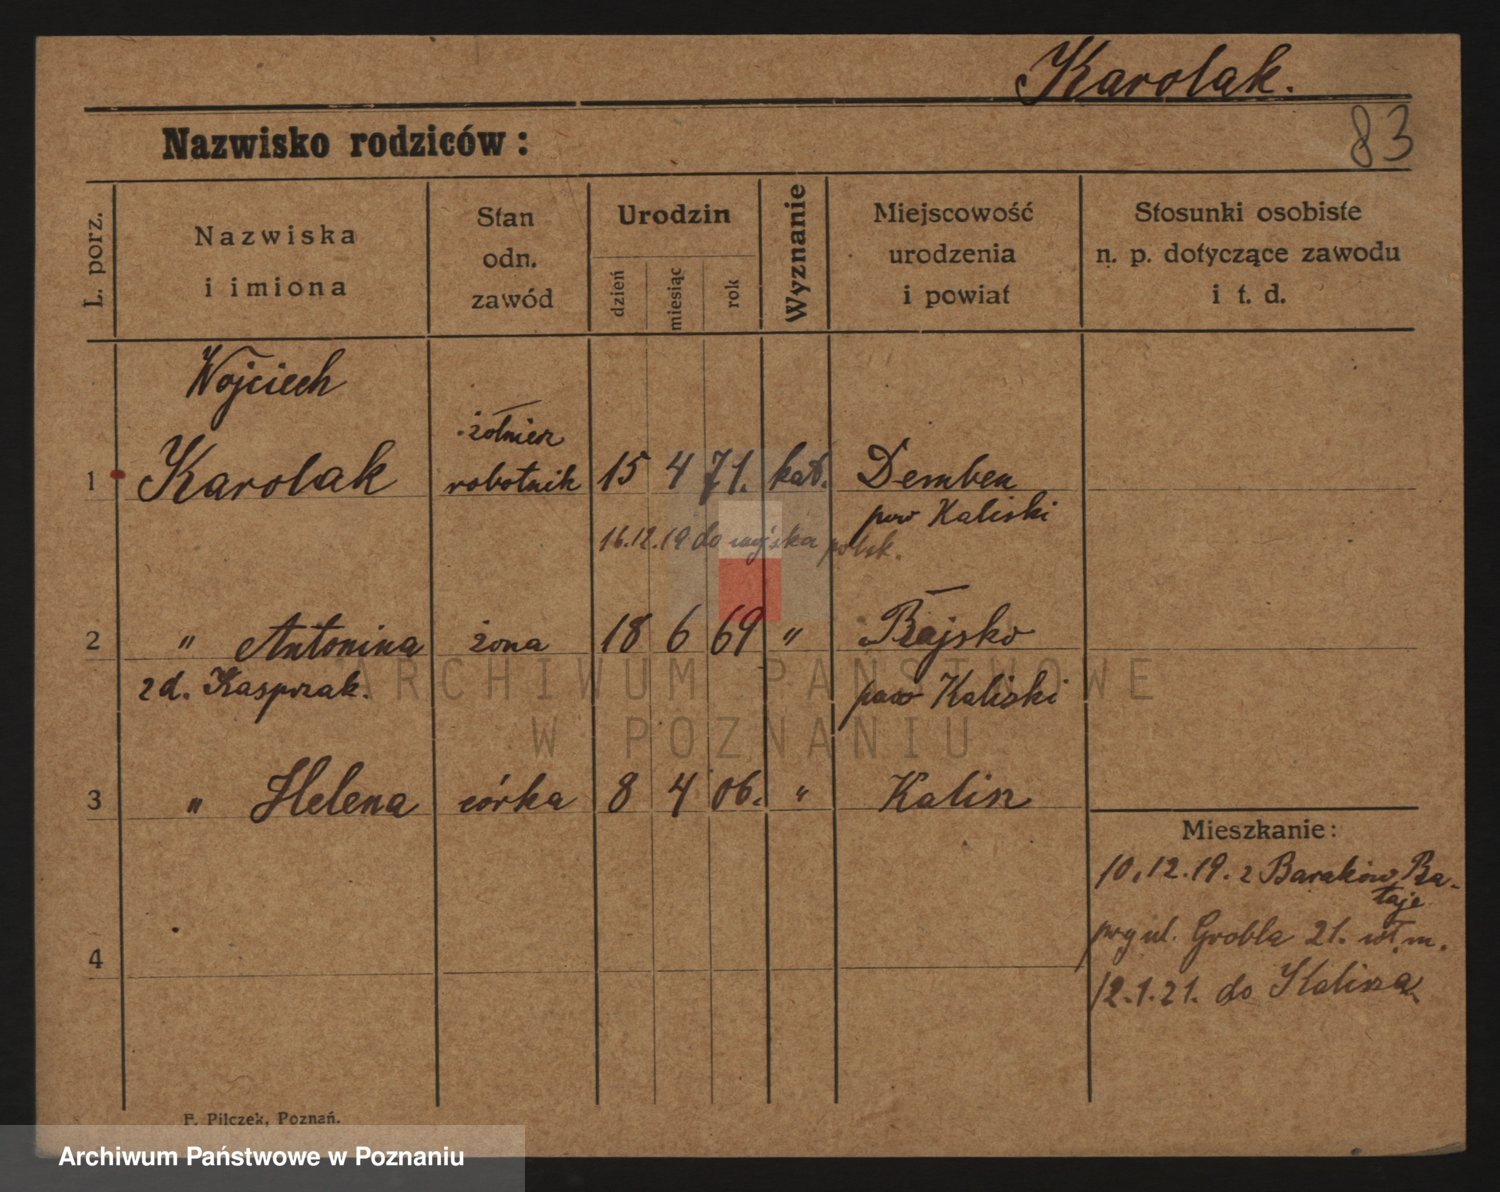 Karolak.
83
Nazwisko rodziców:
L. porz.
Nazwiska
i imiona
Stan
odn.
zawód
Urodzin
dzień
miesiąc
rok
Wyznanie
Miejscowość
urodzenia
i powiat
Stosunki osobiste
n. p. dotyczące zawodu
i t. d.
Wojciech
żołnierz
1 Karolak robotnik 15 4 71. kat. Demben
pow Kaliski
16.12.19 do wojska polsk.
2 " Antonina żona 18 6 69 "
zd. Kasprzak. pow Kaliski
ARCHIWUM PAŃSTWOWE
W POZNANIU
3 " Helena córka 8 4 06. " Kalisz
Mieszkanie:
10.12.19. z Baraków Ra-
taje
przy ul. Grobla 21. wł. m.
4
12.1.21. do Kalisza
F. Pilczek, Poznań.
Archiwum Państwowe w Poznaniu